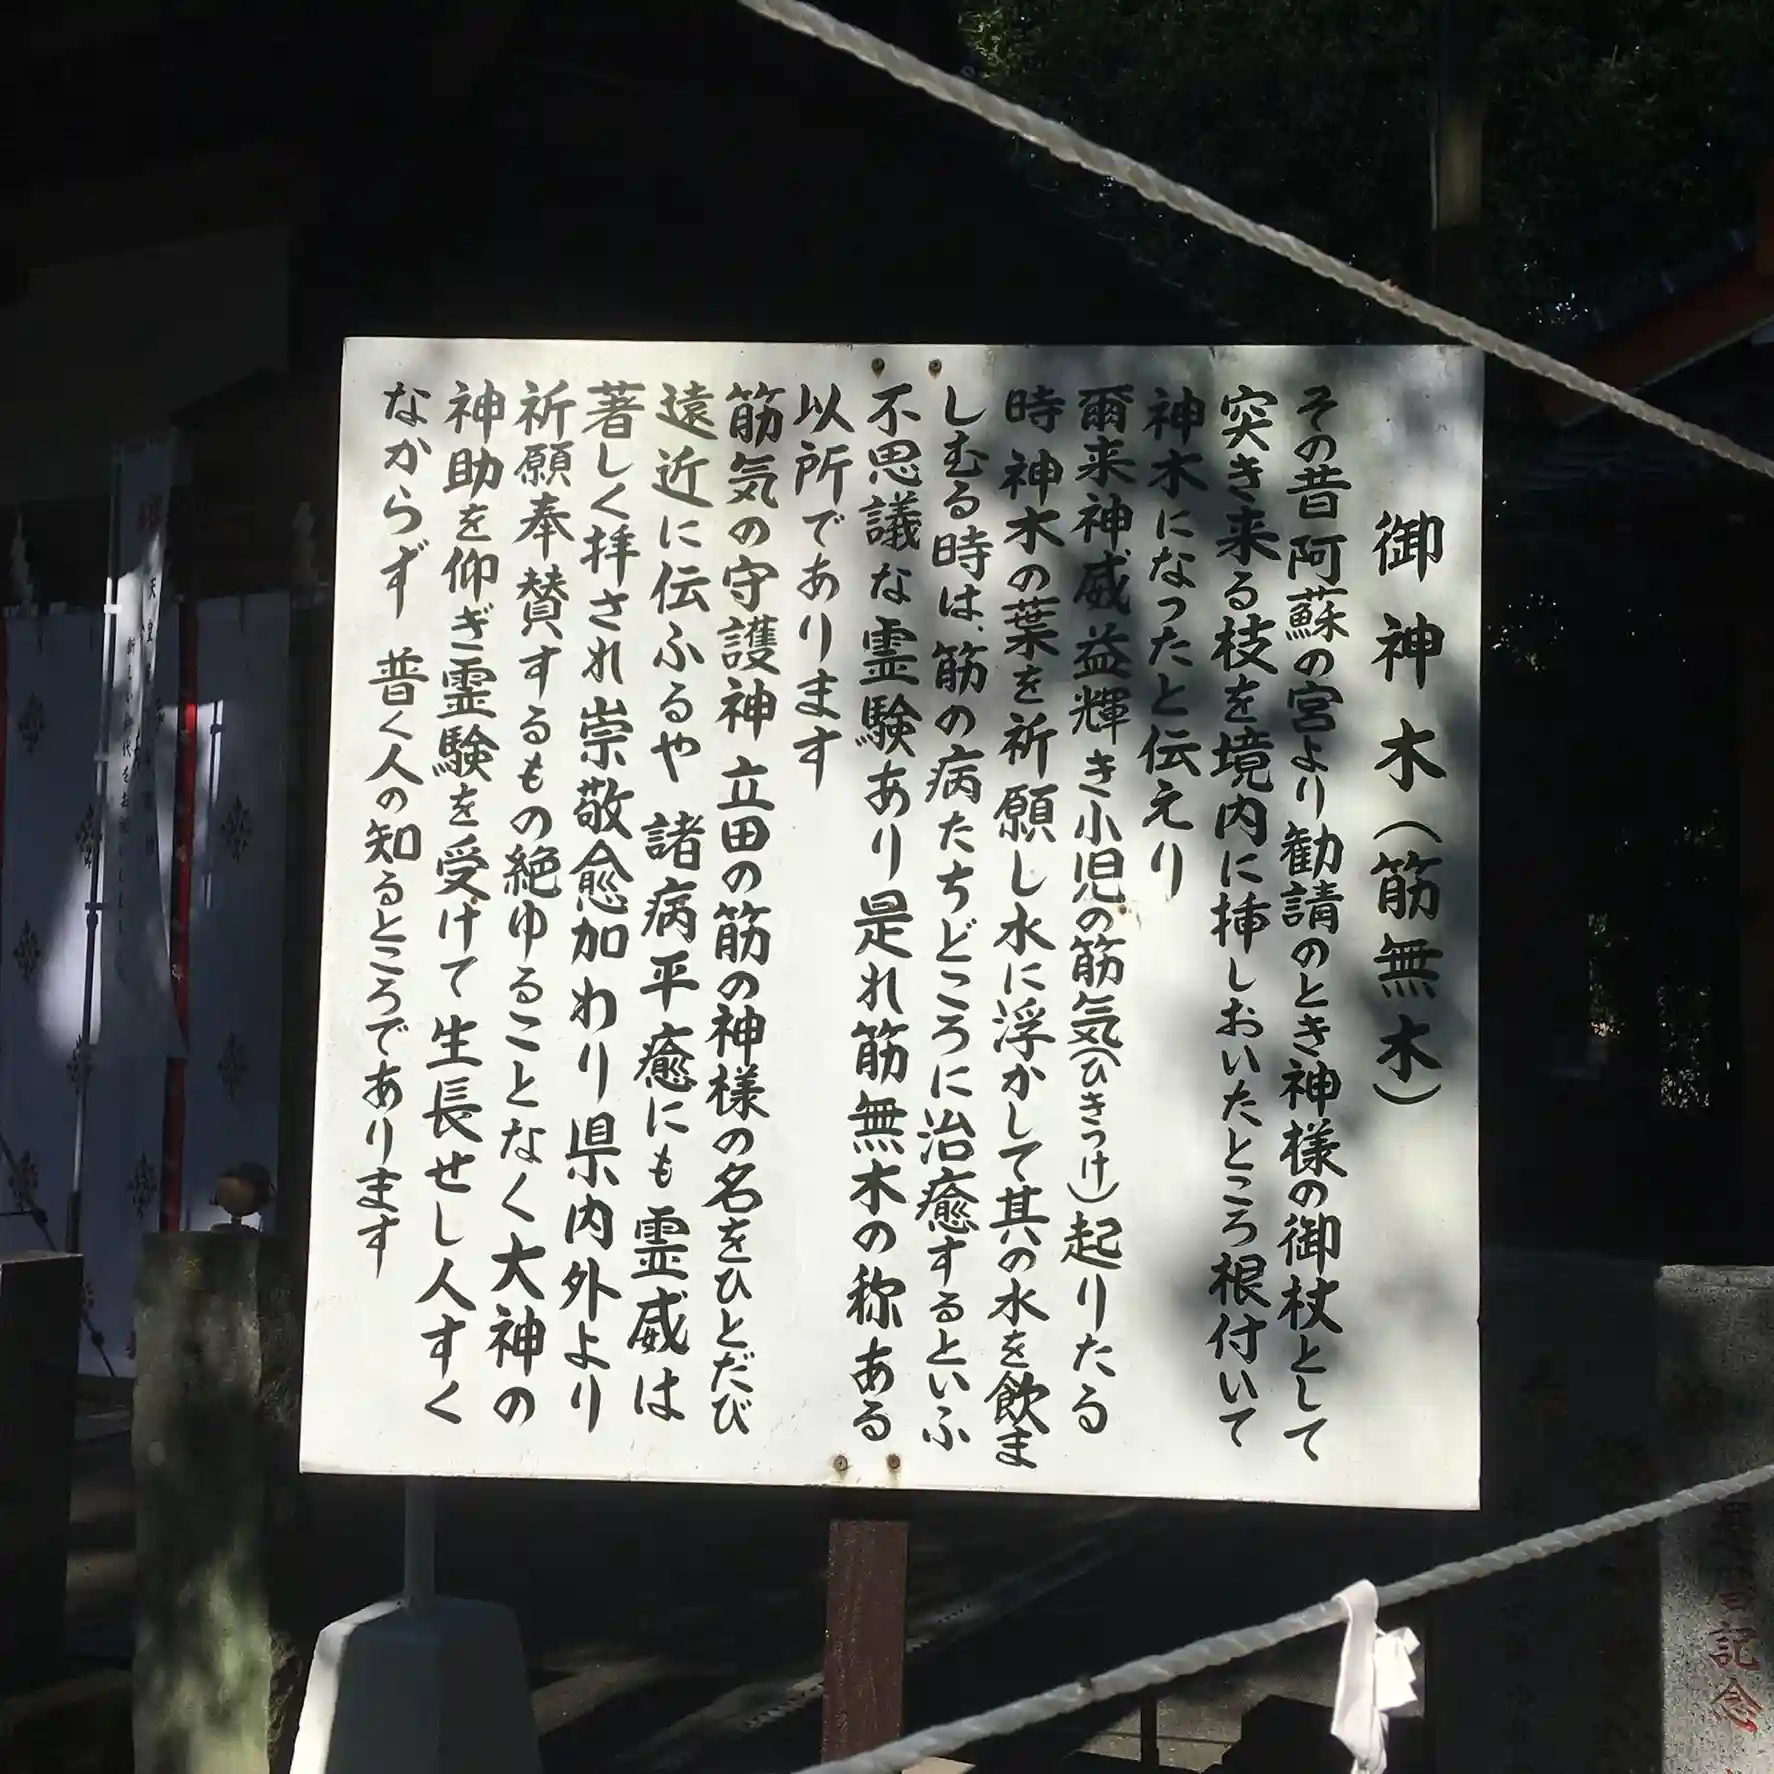 御神木（筋無木）
その昔阿蘇の宮より勧請のとき神様の御杖として
突き来る枝を境内に挿しおいたところ根付いて
神木になったと伝えり
爾来神威益輝き小児の筋気（ひきつけ）起りたる
時神木の葉を祈願し水に浮かして其の水を飲ま
しむる時は、筋の病たちどころに治癒するといふ
不思議な霊験あり是れ筋無木の称ある
以所であります
筋気の守護神 立田の筋の神様の名をひとだび
遠近に伝ふるや 諸病平癒にも霊威は
著しく拝され崇敬愈加わり県内外より
祈願奉賛するもの絶ゆることなく大神の
神助を仰ぎ霊験を受けて生長せし人すく
なからず 普く人の知るところであります
記念